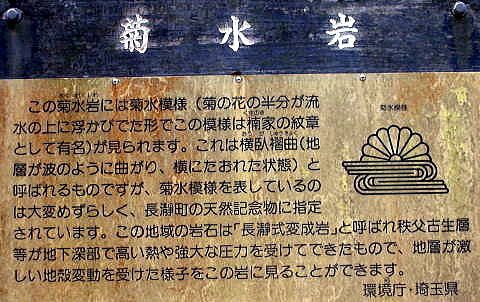 菊水岩
この菊水岩には菊水模様（菊の花の半分が流
水の上に浮かびでた形でこの模様は楠家の紋章
として有名)が見られます。これは横臥褶曲(地
層が波のように曲がり、横にたおれた状態）と
呼ばれるものですが、菊水模様を表しているの
は大変めずらしく、長瀞町の天然記念物に指定
されています。この地域の岩石は「長瀞式変成岩」と呼ばれ秩父古生層
等が地下深部で高い熱や強大な圧力を受けてできたもので、地層が激
しい地殻変動を受けた様子をこの岩に見ることができます。
環境庁・埼玉県
菊水模様